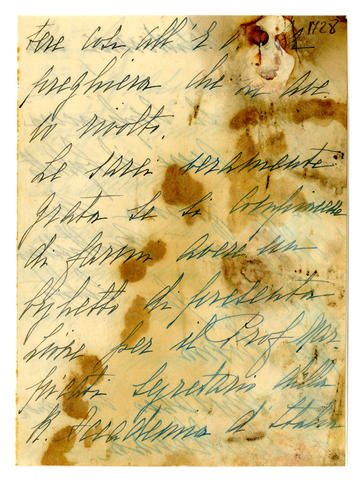 1128
fere così all' E
preghiera che
to rivolto.
Le sarei veramente
grata se si compiacesse
di farmi avere un
biglietto di presenta
zione per il Prof. Mar
segretario della
R. Accademia d'Italia